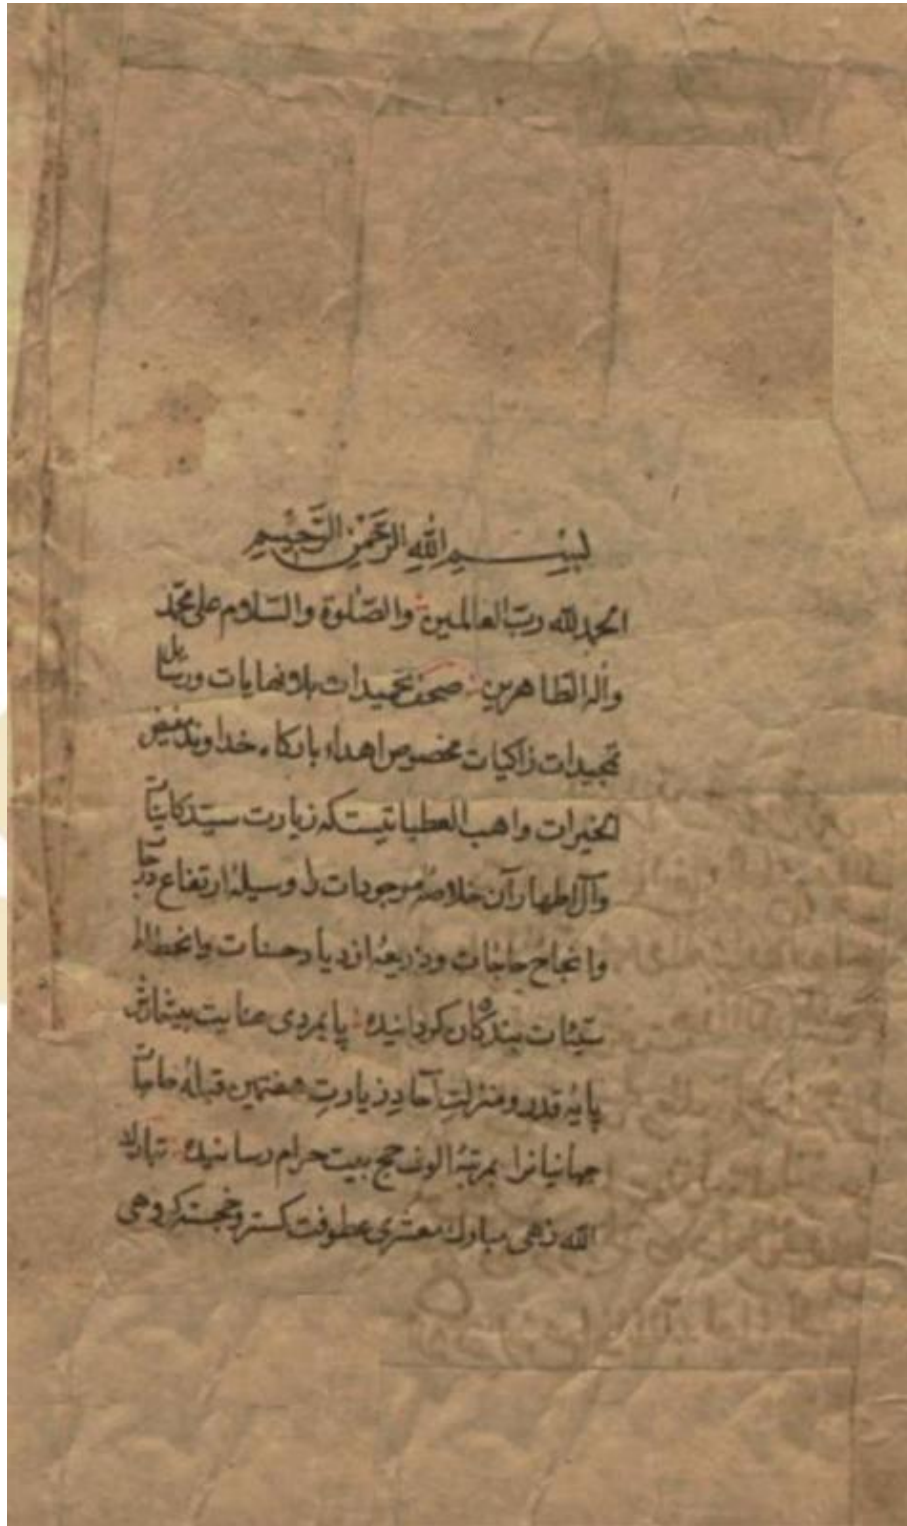 بِسْمِ اللهِ الرَّحْمٰنِ الرَّحِيْمِ
الحمد لله ربّ العالمین والصّلوة والسّلام علی محمّد
وآله الطاهرین صحف تحمیدات بلا نهایات ورسایل
تمجیدات زاکیات مخصوص اهداء بارکاه خداوند مفیض
الخیرات واهب العطیاتیستکه زیارت سیّد کاینات
وآل اطهار آن خلاصهٔ موجودات را وسیلهٔ ارتفاع درجات
وانجاح حاجات وذریعهٔ ازدیاد حسنات وانحطاط
سیّئات بندکان کردانیده پایمردی عنایت بیشمارش
پایهٔ قدر ومنزلتِ آحادِ زیارتِ هفتمین قبلهٔ حاجات
جهانیانرا بمرتبهٔ الوف حج بیت حرام رسانیده تبارك
الله زهی مبارك معشری عطوفت کستر وخجسته کروهی